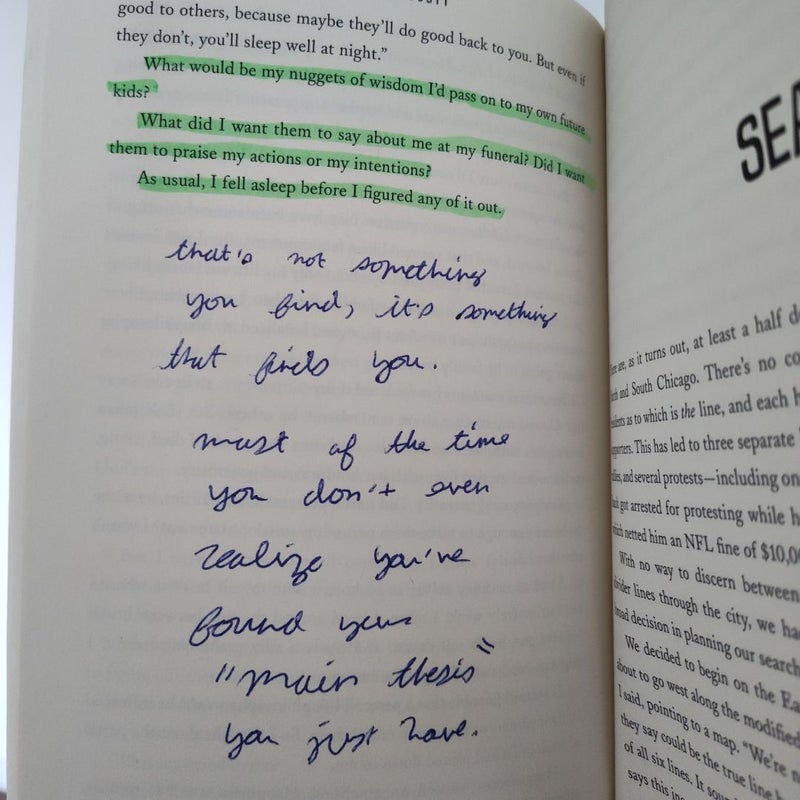 good to others, because maybe they'll do good back to you. But even if
they don't, you'll sleep well at night."
What would be my nuggets of wisdom I'd pass on to my own future
kids?
What did I want them to say about me at my funeral? Did I want
them to praise my actions or my intentions?
As usual, I fell asleep before I figured any of it out.
that's not something
you find, it's something
that finds you.
most of the time
you don't even
realize you've
found your
"main thesis"
you just have.
SEA
are, as it turns out, at least a half
and South Chicago. There's no
as to which is the line, and each
This has led to three separate
and several protests—including
got arrested for protesting while
which netted him an NFL fine of $10,0
With no way to discern between
lines through the city, we
decision in planning our search
We decided to begin on the
about to go west along the modified
I said, pointing to a map. "We're
they say could be the true line
of all six lines. It
says this